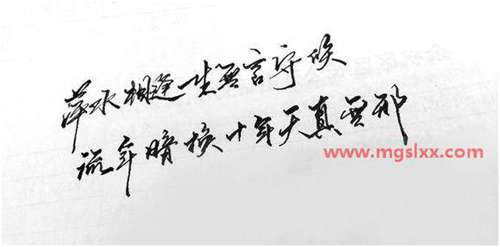 萍水相逢一生無言守候
流年暗换十年天真無邪
www.mgslxx.com